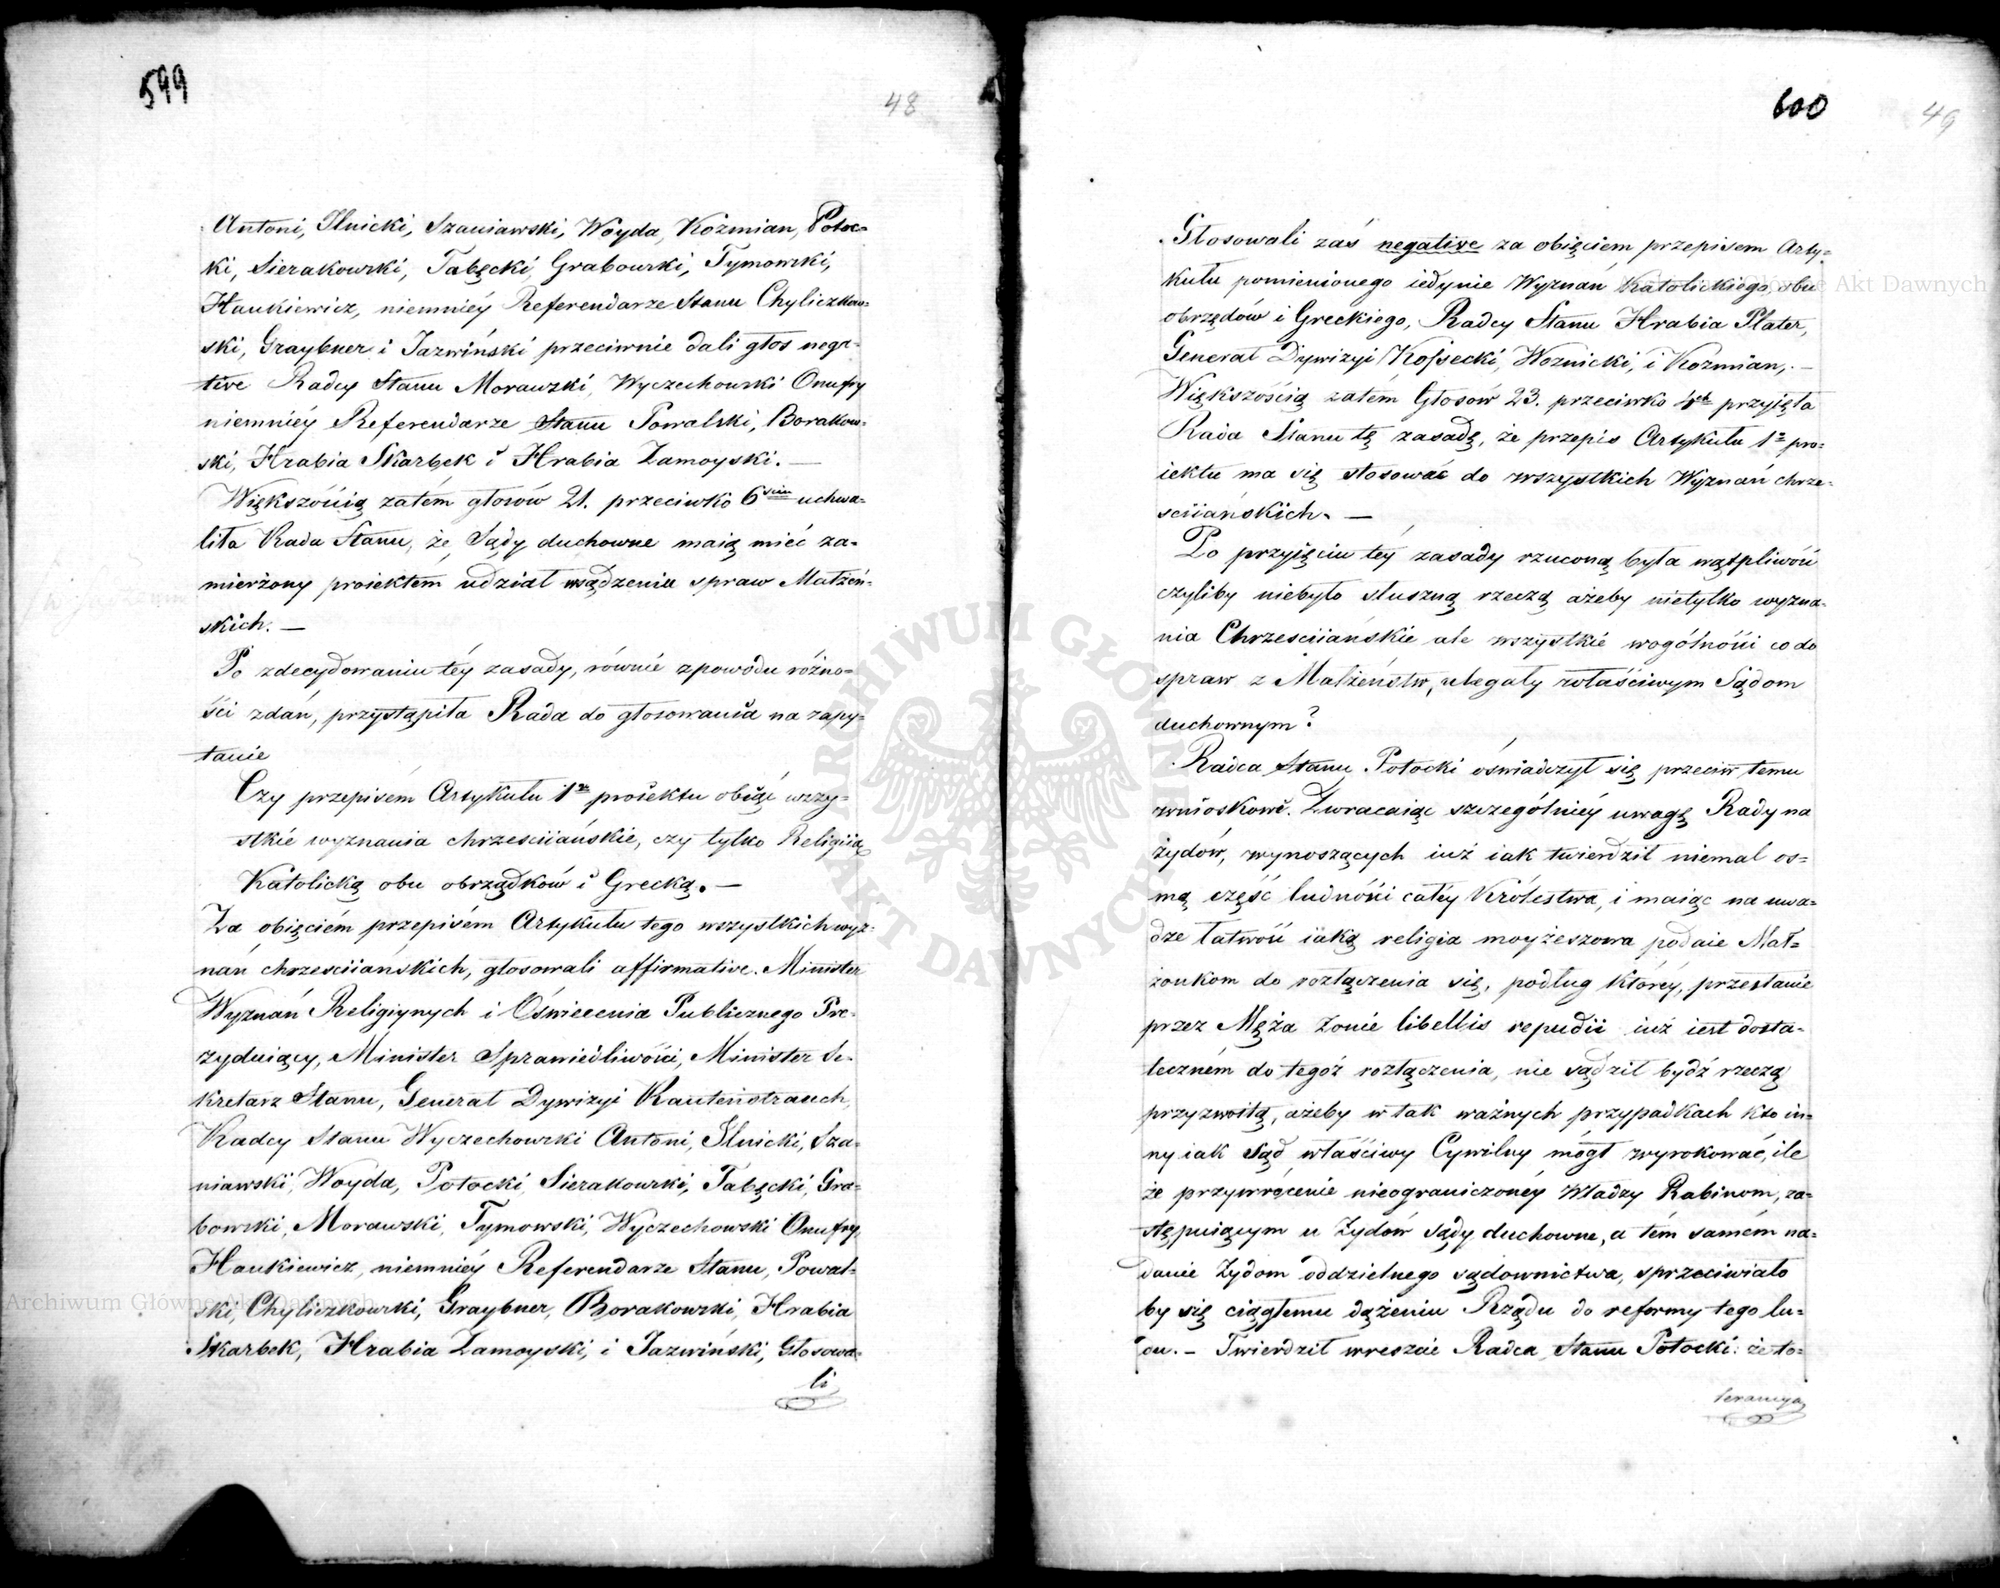 599
48
Antoni, Ilnicki, Szaniawski, Woyda, Koźmian, Potoc-
ki, Sierakowski, Tabęcki, Grabowski, Tymowski,
Hankiewicz, niemniéy Referendarze Stanu Chyliczkow-
ski, Graybner i Jazwiński przeciwnie dali głos nega-
tive Radcy Stanu Morawski, Wyczechowski Onufry
niemniéy Referendarze Stanu Powalski, Borakow-
ski, Hrabia Skarbek i Hrabia Zamoyski. —
Większością zatém głosów 21. przeciwko 6 uchwa-
liła Rada Stanu, że Sądy duchowne maią mieć za-
mierzony proiektem udział w sądzeniu spraw Małżeń-
skich. —
Po zdecydowaniu téy zasady, równie z powodu różno-
ści zdań, przystąpiła Rada do głosowania na zapy-
tanie
Czy przepisem Artykułu 1º proiektu obiąć wszy-
stkie wyznania chrzesciiańskie, czy tylko Religiią
Katolicką obu obrządków i Grecką. —
Za obięciém przepisem Artykułu tego wszystkich wyz-
nań chrzesciiańskich, głosowali affirmative. Minister
Wyznań Religiynych i Oświecenia Publicznego Pre-
zyduiący, Minister Sprawiedliwości, Minister Se-
kretarz Stanu, Generał Dywizyi Rautenstrauch,
Radcy Stanu Wyczechowski Antoni, Ilnicki, Sza-
niawski, Woyda, Potocki, Sierakowski, Tabęcki, Gra-
bowski, Morawski, Tymowski, Wyczechowski Onufry,
Hankiewicz, niemniéy Referendarze Stanu, Powal-
ski, Chyliczkowski, Graybner, Borakowski, Hrabia
Skarbek, Hrabia Zamoyski, i Jazwiński, Głosowa-
li
600
49
Głosowali zaś negative za obięciem przepisem Arty-
kułu pomienionego iedynie Wyznań Katolickiego, obu
obrzędów i Greckiego, Radcy Stanu Hrabia Plater,
Generał Dywizyi Kossecki, Woznicki, i Koźmian, —
Większością zatém Głosów 23. przeciwko 4ch przyięła
Rada Stanu tę zasadę, że przepis Artykułu 1º pro-
iektu ma się stosować do wszystkich Wyznań chrze-
sciiańskich. —
Po przyięciu téy zasady rzuconą była wątpliwość
czyliby niebyło słuszną rzeczą ażeby nietylko wyzna-
nia Chrzesciiańskie ale wszystkie wogólności co do
spraw z Małżeństw, ulegały właściwym Sądom
duchownym?
Radca Stanu Potocki oświadczył się przeciw temu
wnioskowi. Zwracaiąc szczególniéy uwagę Rady na
żydów, wynoszących iuż iak twierdził niemal os-
mą część ludności całéy Królestwa, i maiąc na uwa-
dze łatwość iaką religia moyżeszowa podaie Mał-
żonkom do rozłączenia się, podług któréy, przesłanie
przez Męża żonie libellis repudii iuż iest dosta-
teczném do tegoż rozłączenia, nie sądził bydź rzeczą
przyzwoitą, ażeby w tak ważnych przypadkach kto in-
ny iak Sąd właściwy Cywilny mógł wyrokować, ile
że przywrócenie nieograniczonéy Władzy Rabinom, za-
stępuiącym u Żydów sądy duchowne, a tém samém na-
danie Żydom oddzielnego sądownictwa, sprzeciwiało
by się ciągłemu dążeniu Rządu do reformy tego lu-
du. — Twierdził wreszcie Radca Stanu Potocki: że to-
lerancya
ARCHIWUM GŁÓWNE AKT DAWNYCH
Archiwum Główne Akt Dawnych
Archiwum Główne Akt Dawnych